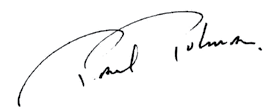 Paul Tolman.